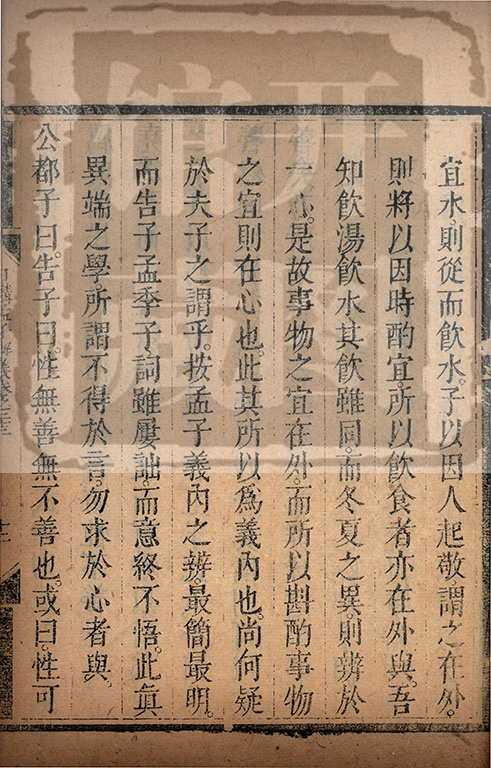 宜水。則從而飲水。子以因人起敬。謂之在外。
則將以因時酌宜。所以飲食者亦在外與。吾
知飲湯飲水其飲雖同。而冬夏之異。則辨於
一心。是故事物之宜在外。而所以斟酌事物
之宜則在心也。此其所以為義內也。尚何疑
於夫子之謂乎。按孟子義內之辨。最簡最明。
而告子孟季子詞雖屢詘。而意終不悟。此眞
異端之學。所謂不得於言。勿求於心者與。
公都子曰。告子曰。性無善無不善也。或曰。性可